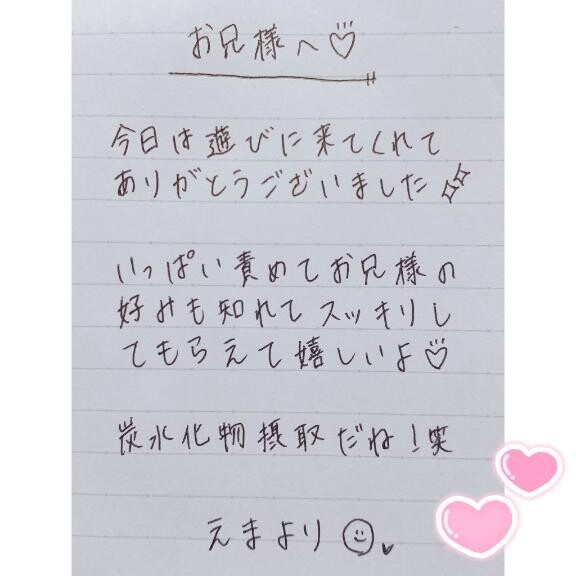 お兄様へ♡
今日は遊びに来てくれて
ありがとうございました✨
いっぱい責めてお兄様の
好みも知れてスッキリし
てもらえて嬉しいよ♡
炭水化物摂取だね！笑
えまより☺♥